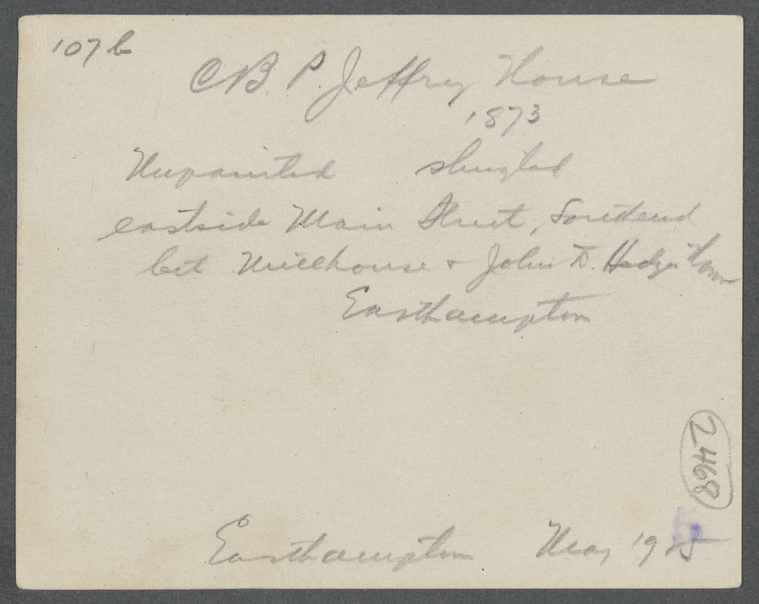 107b
C.B.P. Jeffrey House
1873
Unpainted shingled
eastside Main Street, Southend
bet Millhouse + John D. Hedges House
Easthampton
2468
5
Easthampton May 1925